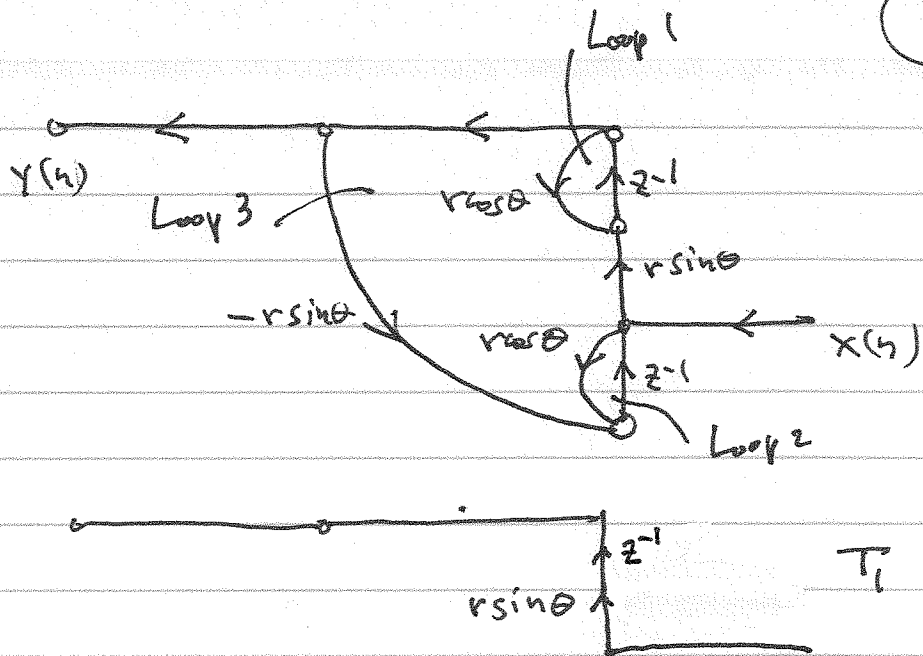 Loop 1
Y(n)
Loop 3
rcosθ
z-1
rsinθ
-rsinθ
rcosθ
X(n)
z-1
Loop 2
z⁻¹
T₁
rsinθ